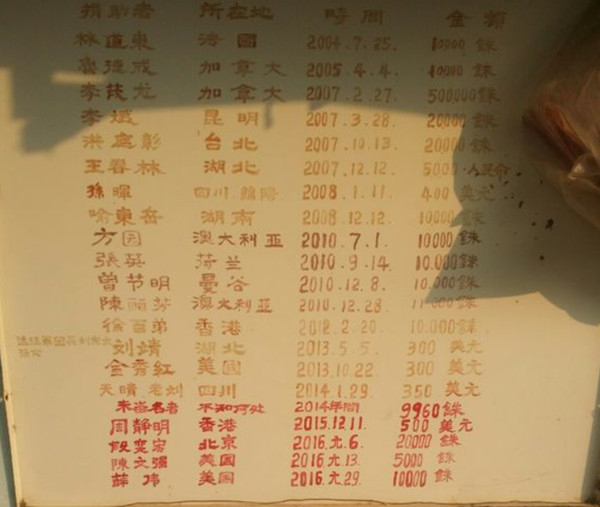 捐助者 所在地 時間 金額
林道東 法國 2004.7.25. 10000 銖
魯德成 加拿大 2005.4.4. 10000 銖
李筏龙 加拿大 2007.2.27. 500000 銖
李斌 昆明 2007.3.28. 20000 銖
洪處彰 台北 2007.10.13. 20000 銖
王春林 湖北 2007.12.12 5000 人民币
孫暉 四川 綿陽 2008.1.11. 400 美元
喻東岳 湖南 2008.12.12. 10000 銖
方圆 澳大利亚 2010.7.1. 10000 銖
張英 荷兰 2010.9.14. 10.000 銖
曾节明 曼谷 2010.12.8. 10.000 銖
陳丽芬 澳大利亚 2010.12.28 11.000 銖
徐百弟 香港 2012.2.20. 10.000 銖
刘靖 湖北 2013.5.5. 300 美元
金秀红 美國 2013.10.22 300 美元
天晴 老刘 四川 2014.1.29. 350 美元
未签名者 不知何处 2014年間 9960 銖
周静明 香港 2015.12.11. 500 美元
段雯宏 北京 2016.元.6. 20000 銖
陳文强 美国 2016.元.13. 5000 銖
薛伟 美国 2016.元.29. 10000 銖